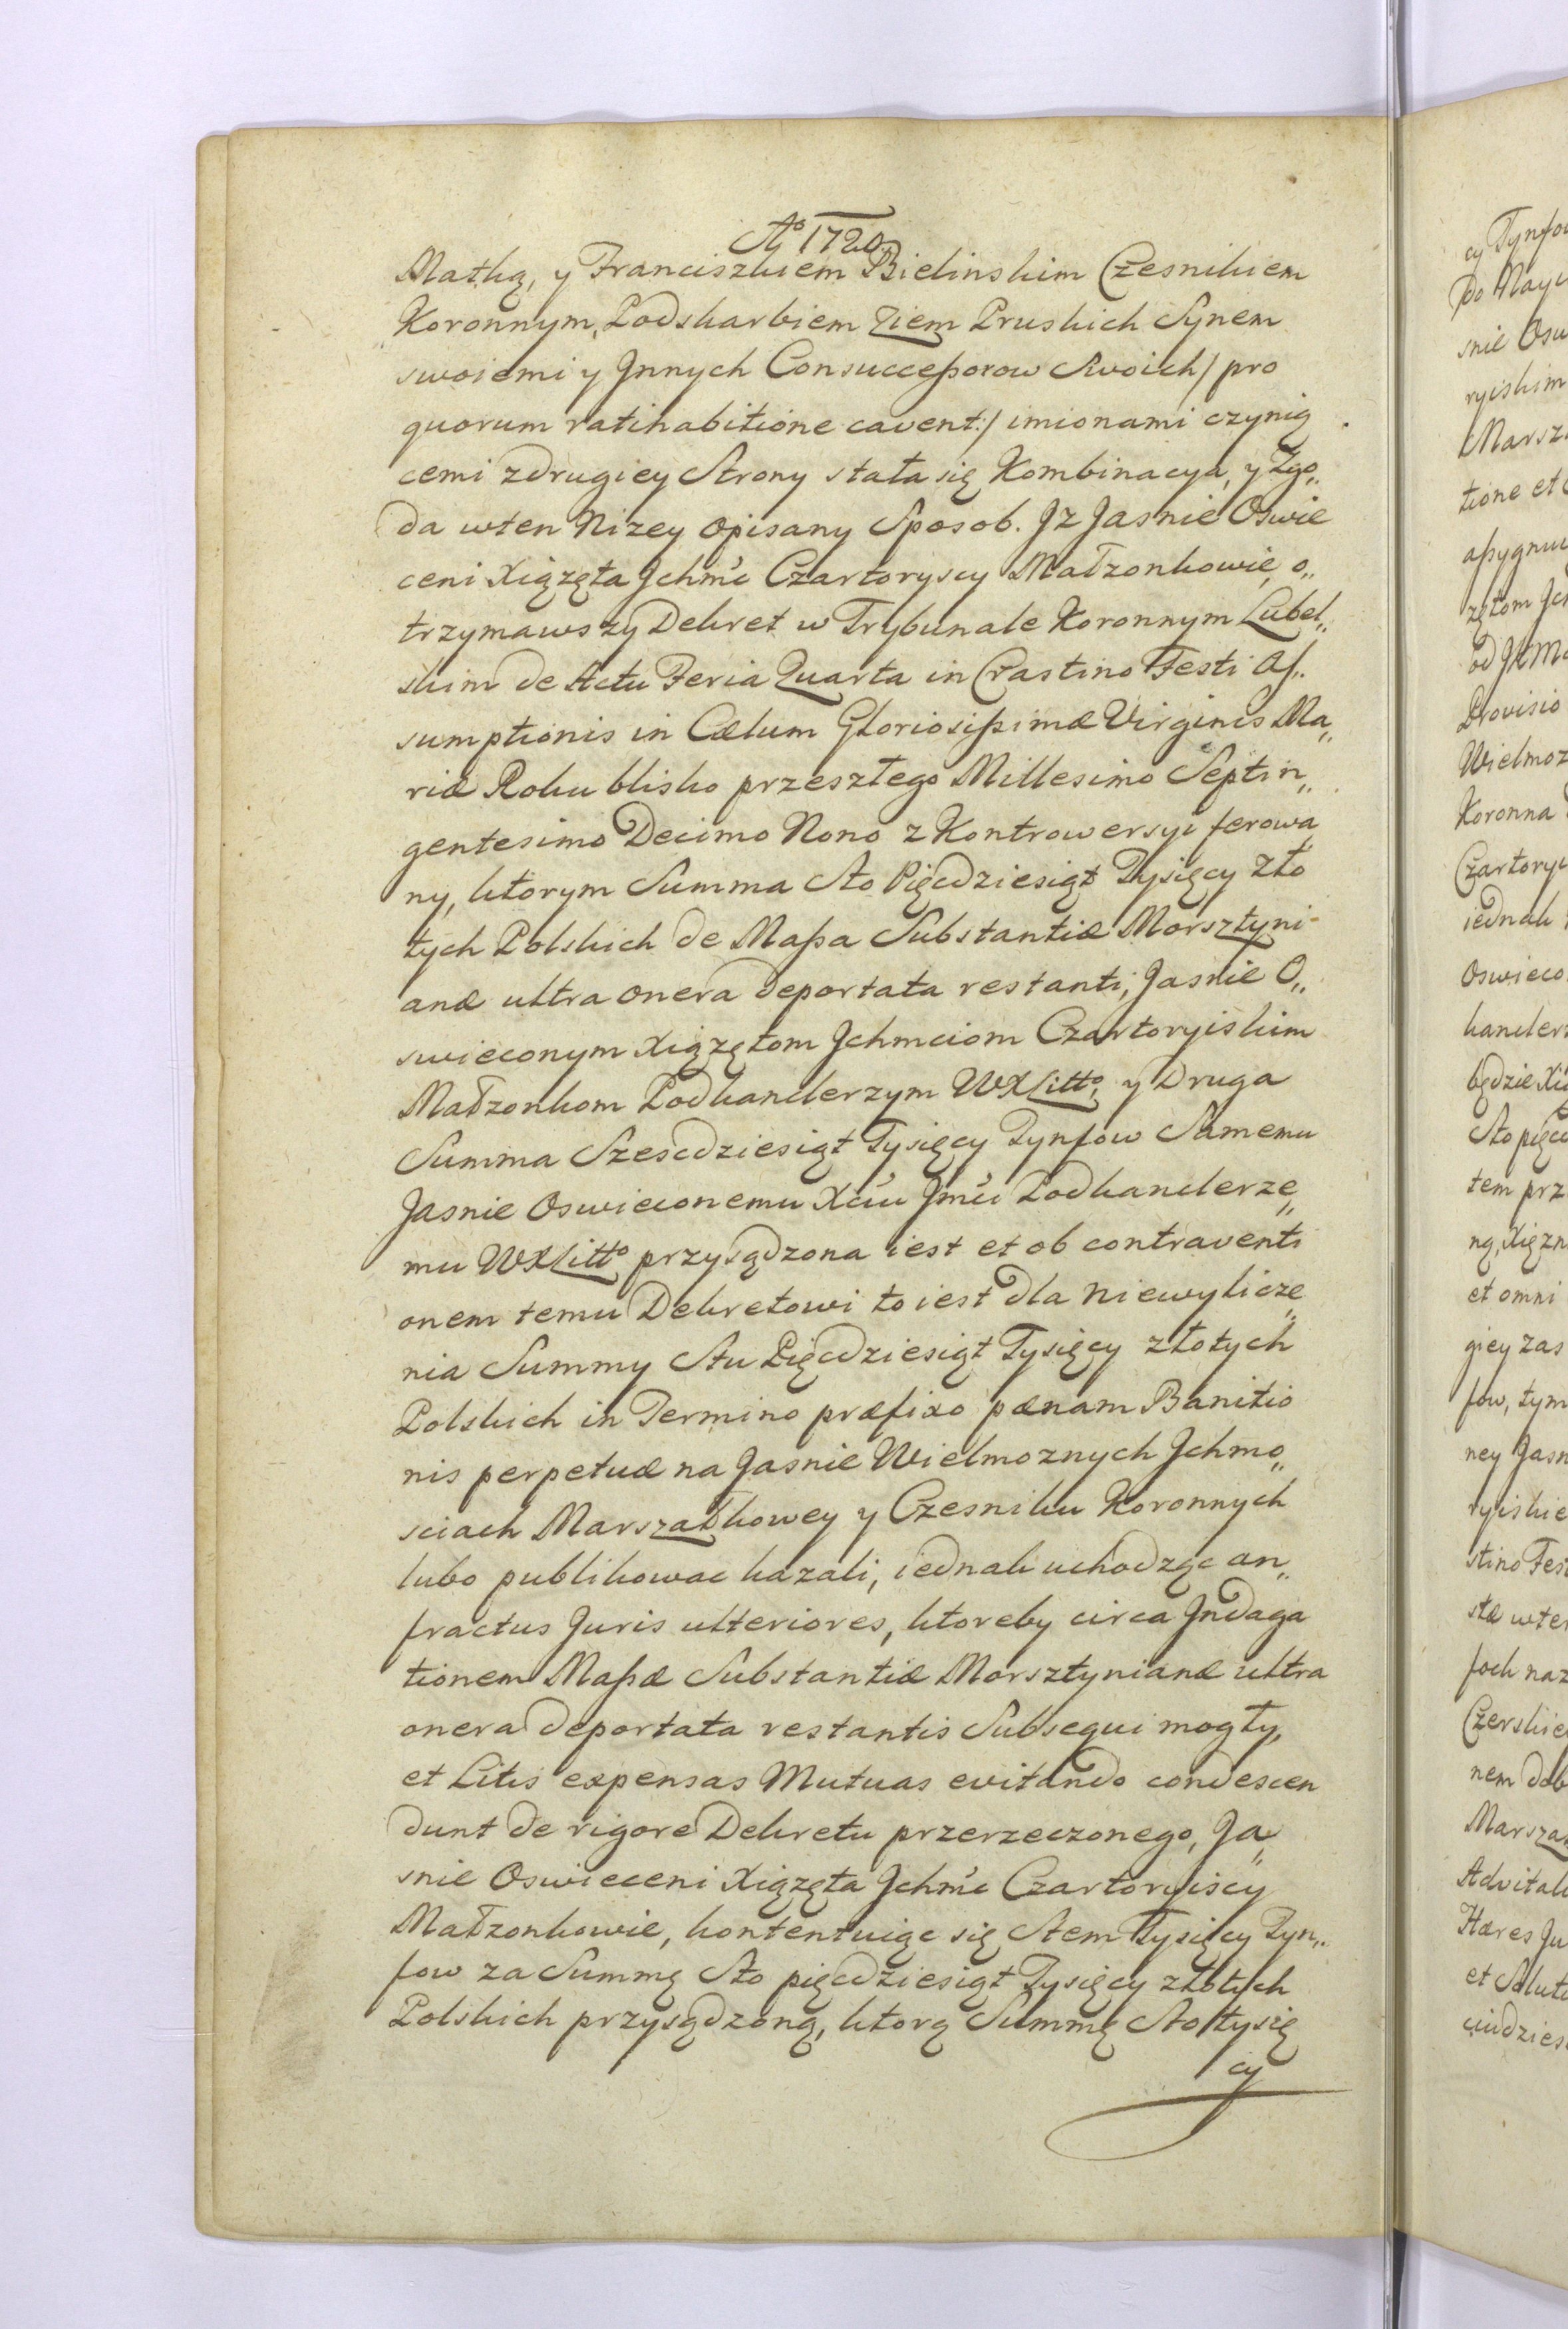 Aº 1720
Matką, y Franciszkiem Bielinskim Czesnikiem
Koronnym, Podskarbiem Ziem Pruskich Synem
swoiemi y Jnnych Consucceßorow Swoich / pro
quorum ratihabitione cavent:/ imionami czynią
cemi z drugiey Strony stała się Kombinacya, y Zgo„
da wten Nizey opisany Sposob. Jz Jasnie Oswie
ceni Xiązęta Jchm̃c Czartoryscy Małzonkowie, o„
trzymawszy Dekret w Trybunale Koronnym Lubel„
skim de Actu Feria Quarta in Crastino Festi As„
sumptionis in Cælum Gloriosißimæ Virginis Ma„
riæ Roku blisko przeszłego Millesimo Septin„
gentesimo Decimo Nono z Kontrowersyi ferowa
ny, ktorym Summa Sto Pięcdziesiąt Tysięcy Zło
tych Polskich de Maßa Substantiæ Morsztyni-
anæ ultra onera deportata restanti, Jasnie O„
swieconym Xiązętom Jchmciom Czartoryiskim
Małzonkom Podkanclerzym WXLittº, y Druga
Summa Szescdziesiąt Tysięcy Tynfow Samemu
Jasnie Oswieconemu Xciu Jm̃ci Podkanclerze„
mu WXLittº przysądzona iest et ob contraventi
onem temu Dekretowi to iest dla Niewylicze„
nia Summy Stu Pięcdziesiąt Tysięcy złotych
Polskich in Termino præfixo pænam Banitio
nis perpetuæ na Jasnie Wielmoznych Jchmo„
sciach Marszałkowey y Czesniku Koronnych
lubo publikowac kazali, iednak uchodząc an„
fractus Juris ulteriores, ktoreby circa Jndaga
tionem Maßæ Substantiæ Morsztynianæ ultra
onera deportata restantis Subsequi mogły,
et Litis expensas Mutuas evitando condescen
dunt de rigore Dekretu przerzeczonego, Ja„
snie Oswieceni Xiązęta Jchm̃c Czartoryiscy
Małzonkowie, kontentuiąc się Stem Tysięcy Tyn„
fow za Summę Sto pięcdziesiąt Tysięcy złotych
Polskich przysądzoną, ktorą Summę Sto tysię
cy
cy Tynfo
do Nay
snie Osw
ryiskim
Marsz
tione et
aßygnu
zętom Jc
od
Provisio
Wielmoz
Koronna
Czartory
iednak
Oswieco
kancler
będzie Xi
Sto pięc
tem prz
ną, Xięzn
et omni
giey zas
fow, tym
ney Jasn
ryiskie
stino Fes
stæ wter
foch naz
Czerskie
nem dob
Marsza
Advital
Hæres Ju
et Solut
ciudzies